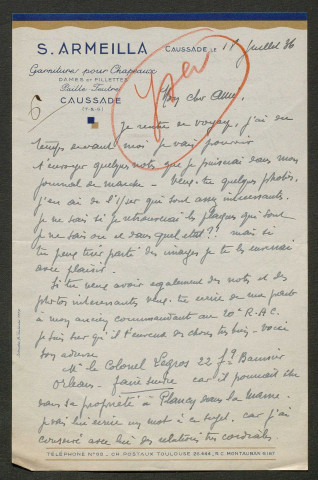 S. ARMEILLA
Garnitures pour Chapeaux
DAMES et FILLETTES
Paille Feutre
CAUSSADE
(T.-&-G.)
CAUSSADE LE 11 Juillet 36
Yser
6
Mon cher Ami,
Je rentre de voyage, j'ai du
temps devant moi je vais pouvoir
t'envoyer quelques notes que je puiserai dans mon
journal de marche - Veux-tu quelques photos,
j'en ai de l'Yser qui sont assez intéressantes.
Je ne sais si je retrouverai les plaques qui sont
je ne sais où et dans quel état ?! mais si
tu peux tirer parti des images je te les enverrai
avec plaisir.
Si tu veux avoir également des notes et des
photos intéressantes veux-tu écrire de ma part
à mon ancien commandant au 20e R.A.C.
Je sais qu'il a eu des choses très bien - voici
son adresse
Mr le Colonel Legros 22 fg Bannier
Orléans - faire suivre car il pourrait être
dans sa propriété à Plancy dans la Marne.
Je vais lui écrire un mot à ce sujet, car j'ai
conservé avec lui des relations très cordiales.
TÉLÉPHONE N° 98 - CH. POSTAUX TOULOUSE 25.466, R.C. MONTAUBAN 6167